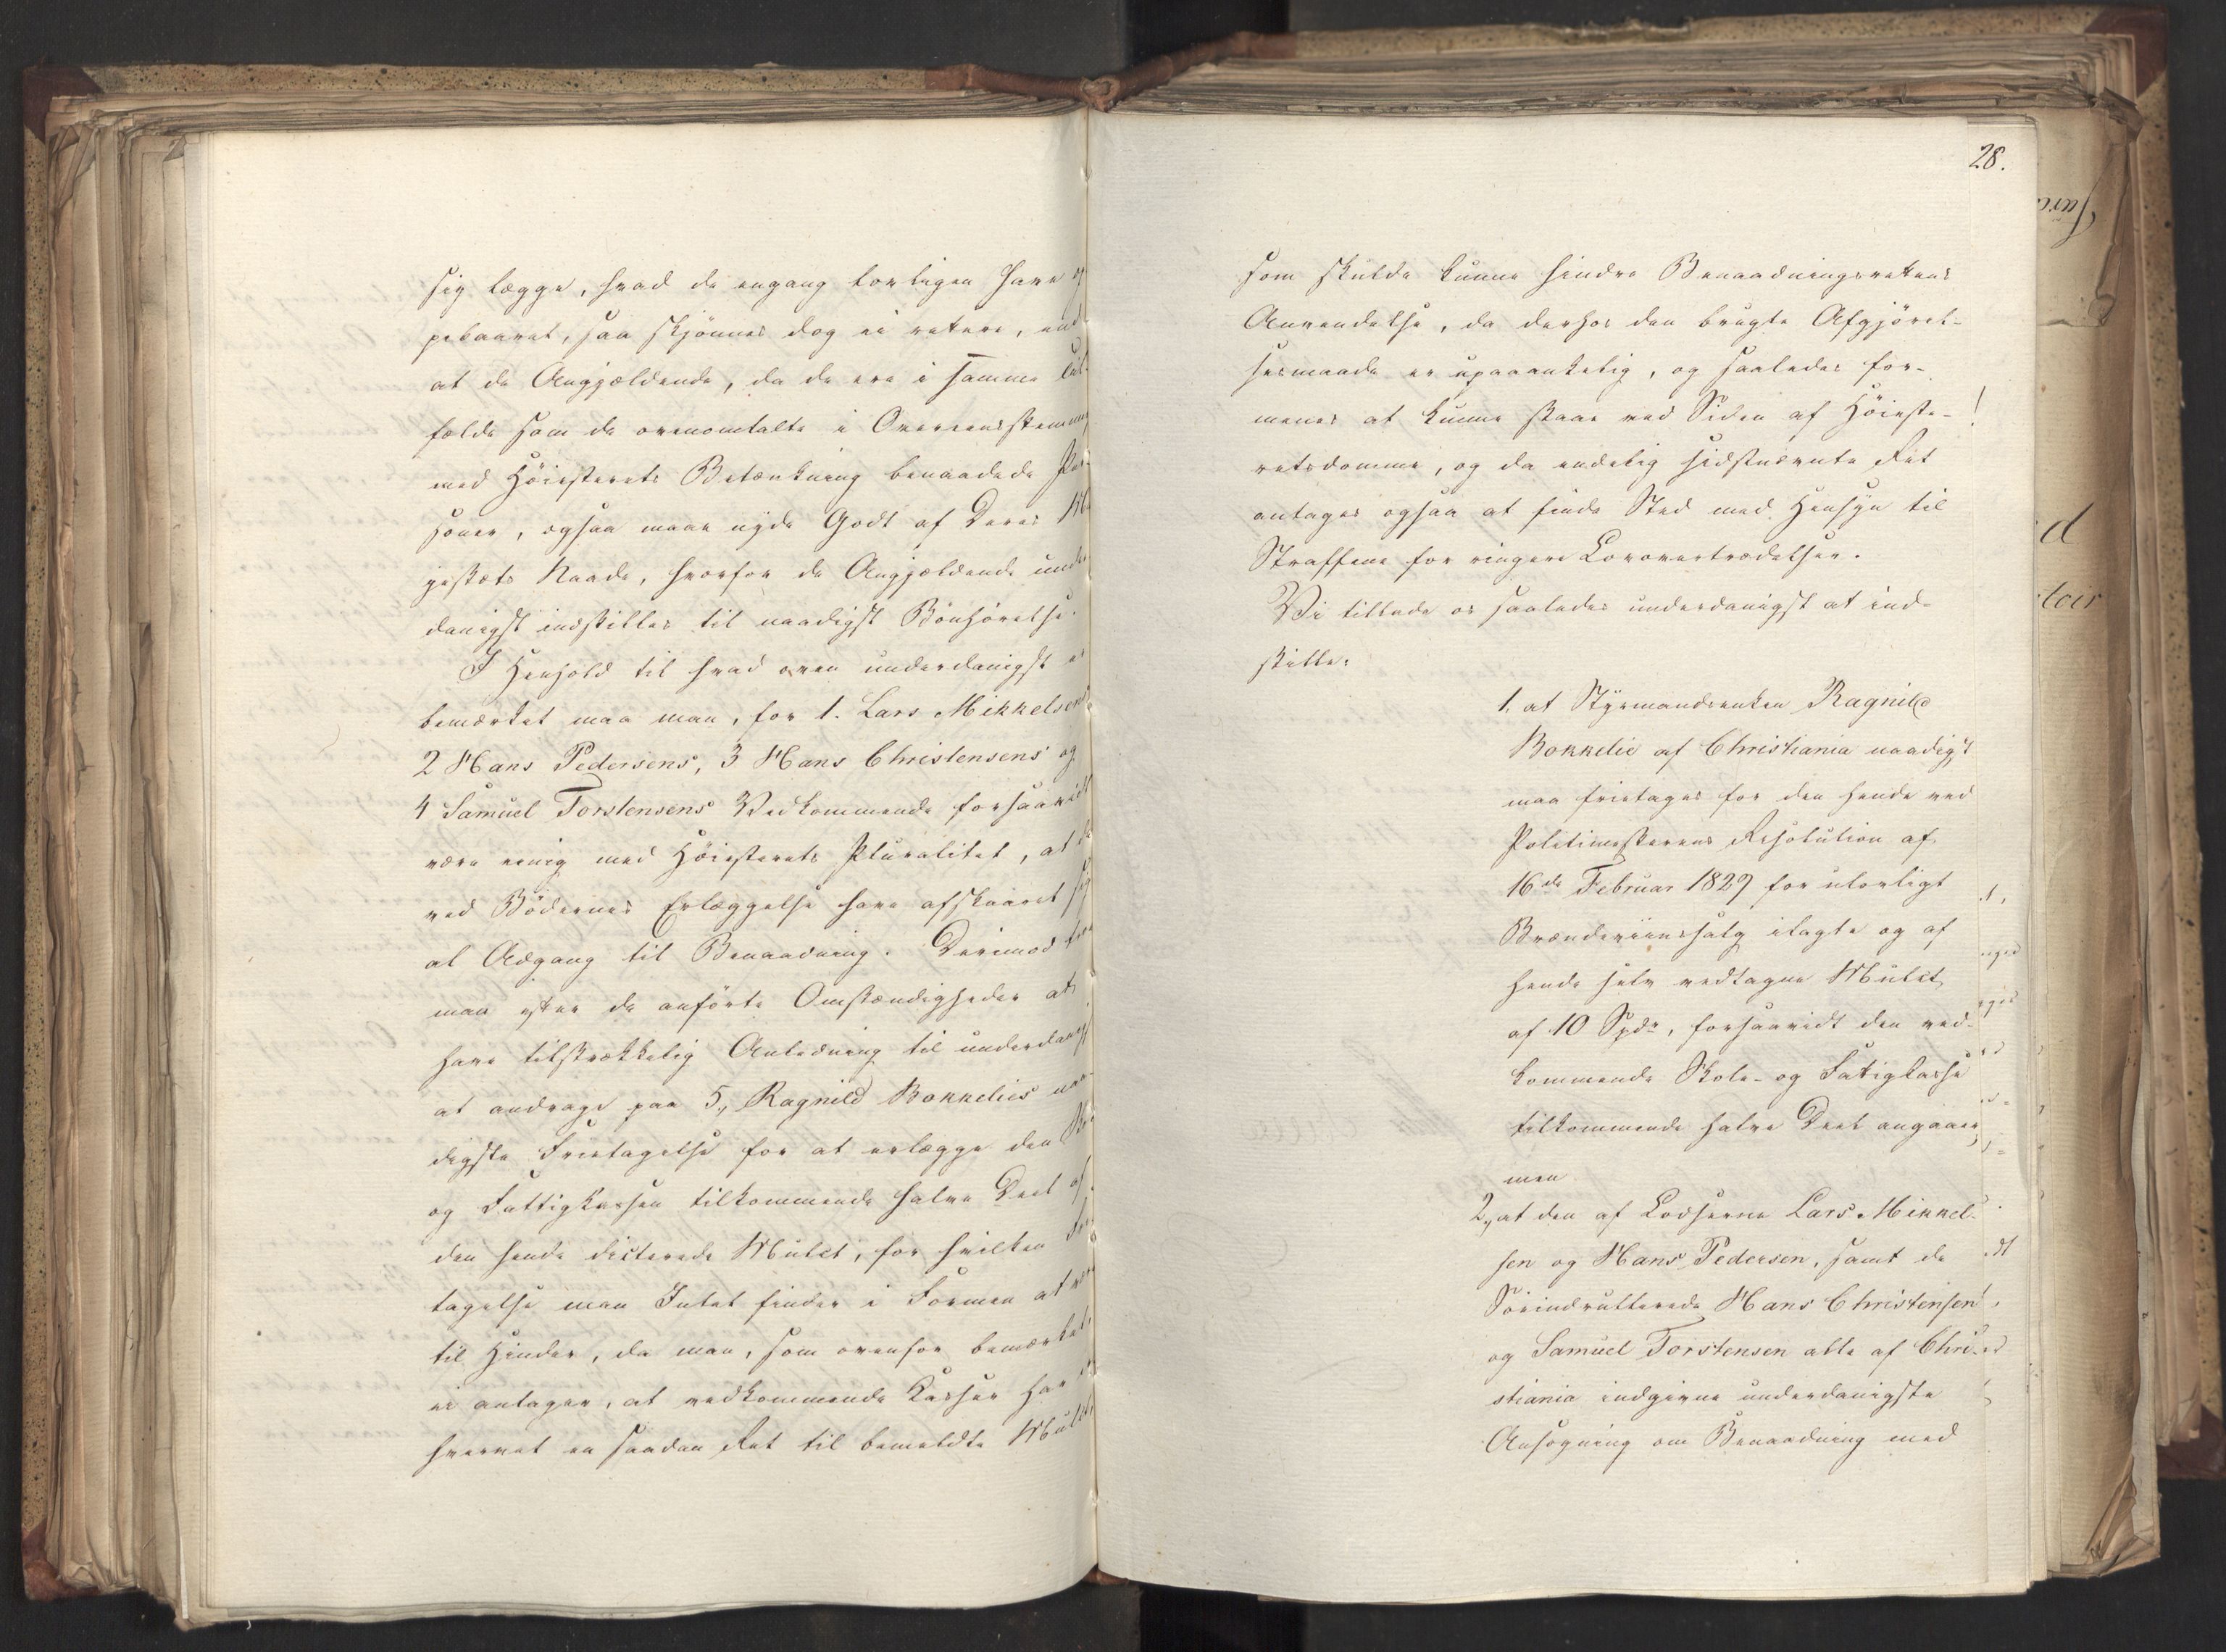 sig lægge, hvad de engang lovligen have op-
pebaaret, saa skjönnes dog ei rettere, end
at de Angjældende, da de ere i samme Til-
fælde som de ovenomtalte i Overeensstemmelse
med Höiesterets Betænkning benaadede Per-
soner, ogsaa maae nyde Godt af Deres Ma-
jestæts Naade, hvorfor de Angjældende under-
danigst indstilles til naadigst Bönhörelse.
I Henhold til hvad oven underdanigst er
bemærket maa man, for 1. Lars Mikkelsens
2 Hans Pedersens, 3 Hans Christensens og
4 Samuel Torstensens Vedkommende forsaavidt
være eenig med Höiesterets Pluralitet, at de
ved Bödernes Erlæggelse have afskaaret sig
al Adgang til Benaadning. Derimod troer
man efter de anförte Omstændigheder at
have tilstrækkelig Anledning til underdanigst
at andrage paa 5, Ragnild Bokkelies naa-
digste Fritagelse for at erlægge den
og Fattigkassen tilkommende halve Deel af
den hende dicterede Mulct, for hvilken Fri-
tagelse man Intet finder i Formen at være
til Hinder, da man, som ovenfor bemærket,
ei antager, at vedkommende Kasser har
hvervet en saadan Ret til bemeldte Mulct,
28.
som skulde kunne hindre Benaadningsrettens
Anvendelse, da derhos den brugte Afgjörel-
sesmaade er upaaankelig, og saaledes for-
menes at kunne staae ved Siden af Höieste-
retsdomme, og da endelig sidstnævnte Ret
antages ogsaa at finde Sted med Hensyn til
Straffene for ringere Lovovertrædelser.
Vi tillade os saaledes underdanigst at ind-
stille:
1. at Styrmandsenken Ragnild
Bokkelie af Christiania naadigst
maa fritages for den hende ved
Politimesterens Resolution af
16de Februar 1829 for ulovligt
Brændeviinssalg ilagte og af
hende selv vedtagne Mulct
af 10 Spdr, forsaavidt den ved-
kommende Skole- og Fatigkasse
tilkommende halve Deel angaaer,
men
2, at den af Lodserne Lars Mikkel-
sen og Hans Pedersen, samt de
Söeindrullerede Hans Christensen
og Samuel Torstensen alle af Chri-
stiania indgivne underdanigste
Ansögning om Benaadning med